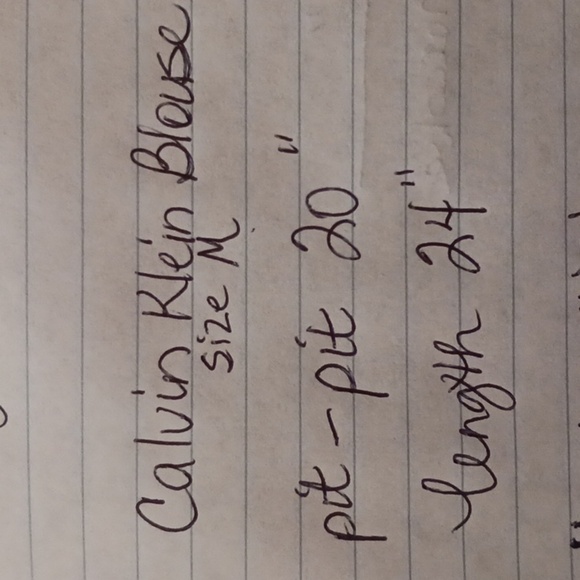 Calvin Klein Blouse
size M
pit - pit 20"
length 24"